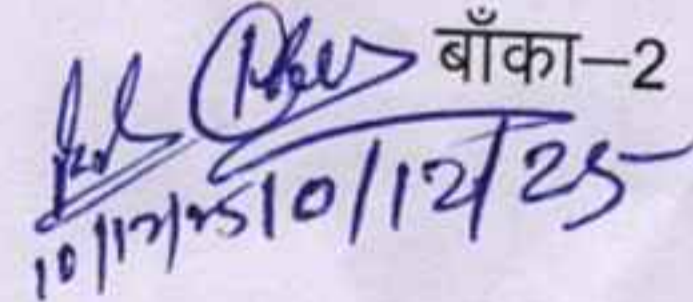 बाँका–2
10/12/25 10/12/25